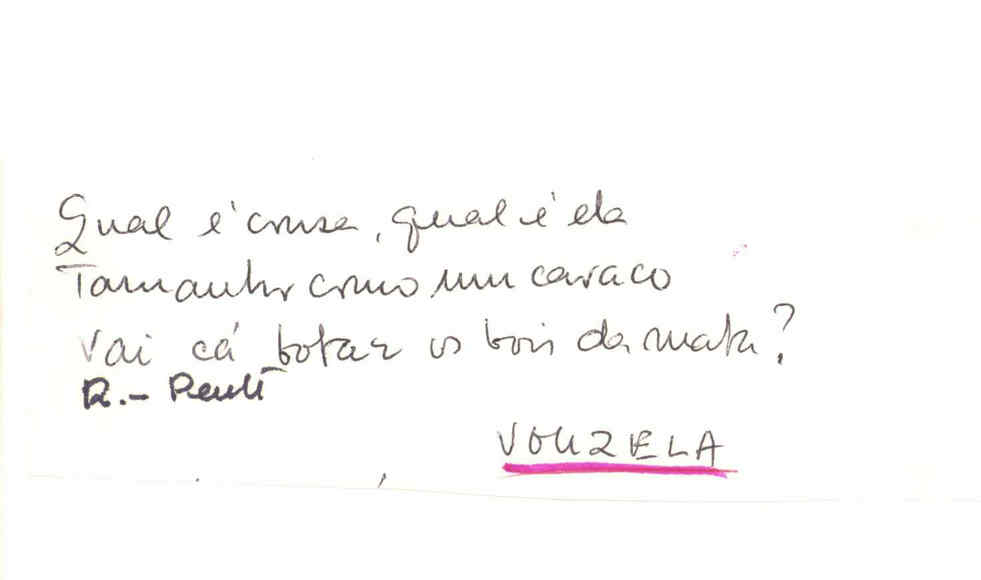 Qual é cousa, qual é ela
Tamanho como um cavaco
Vai cá botar os bois da mata?
R. - Pente
VOUZELA